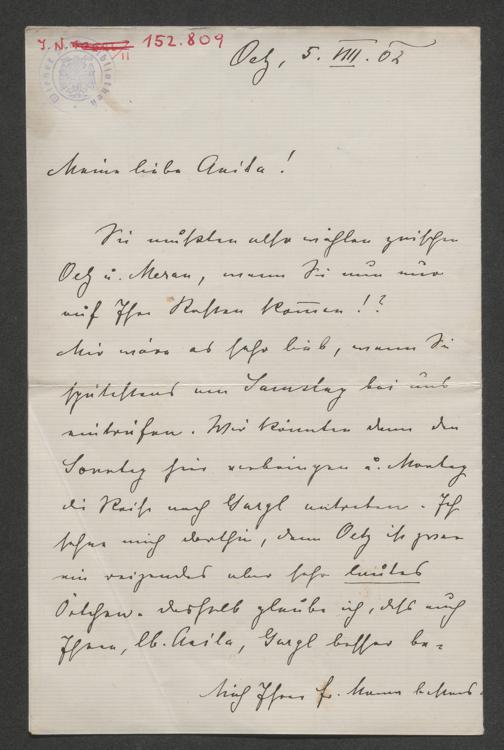 J. N. 152.809
Oetz, 5. VIII. 02
Meine liebe Anita!
Sie müßten also wählen zwischen
Oetz u. Meran, wenn Sie nun nur
auf Ihre Kosten kom̅en!?
Mir wäre es sehr lieb, wenn Sie
spätestens am Samstag bei uns
eintrafen. Wir könnten dann den
Sonntag hier verbringen u. Montag
die Reise nach Gurgl antreten. Ich
sehne mich dorthin, denn Oetz ist zwar
ein reizendes aber sehr lautes
Örtchen. deshalb glaube ich, daß auch
Ihnen, lb. Anita, Gurgl besser be=
Mich Ihrem Hr. Mann bestens